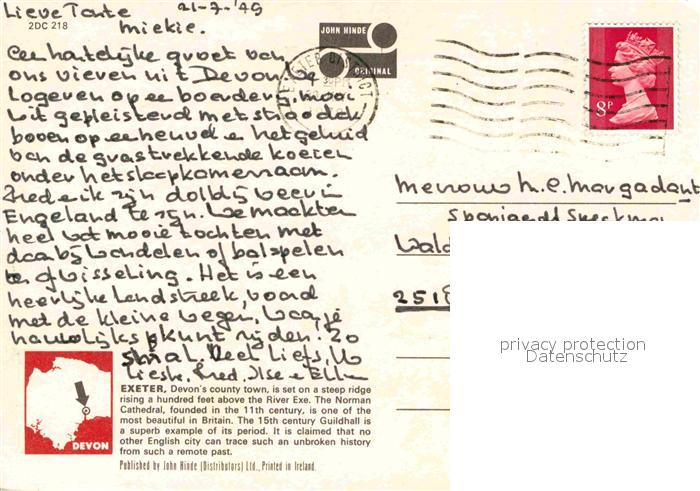 Lieve Tante 21-7-'79
Miekie.
2DC 218
Een hartelijke groet van
ons vieren uit Devon. We
logeren op een boerderij, mooi
wit gepleisterd met strodak
boven op een heuvel en het geluid
van de grastrekkende koeien
onder het slaapkamerraam.
Frederik zijn dolblij weer in
Engeland te zijn. We maakten
heel wat mooie tochten met
daarbij wandelen of balspelen
ter afwisseling. Het is een
heerlijke landstreek, vooral
met de kleine wegen, waar je
nauwelijks kunt rijden. Zo
smal. Veel liefs, Uw
Lieske, Fred, Ilse en Ellen
JOHN HINDE
ORIGINAL
EXETER DISTRICT
8P
Mevrouw M.C. Margadant
Spanjaerdt Speckman
Wald
2518
privacy protection
Datenschutz
DEVON
EXETER, Devon's county town, is set on a steep ridge
rising a hundred feet above the River Exe. The Norman
Cathedral, founded in the 11th century, is one of the
most beautiful in Britain. The 15th century Guildhall is
a superb example of its period. It is claimed that no
other English city can trace such an unbroken history
from such a remote past.
Published by John Hinde (Distributors) Ltd., Printed in Ireland.